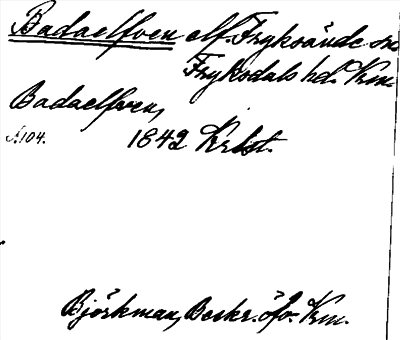 Badaelfven elf. Fryksände sn
Fryksdals hd. Krm.
Badaelfven,
s. 104. 1842 Krbst.
Björkman, Beskr. öfv. Krm.